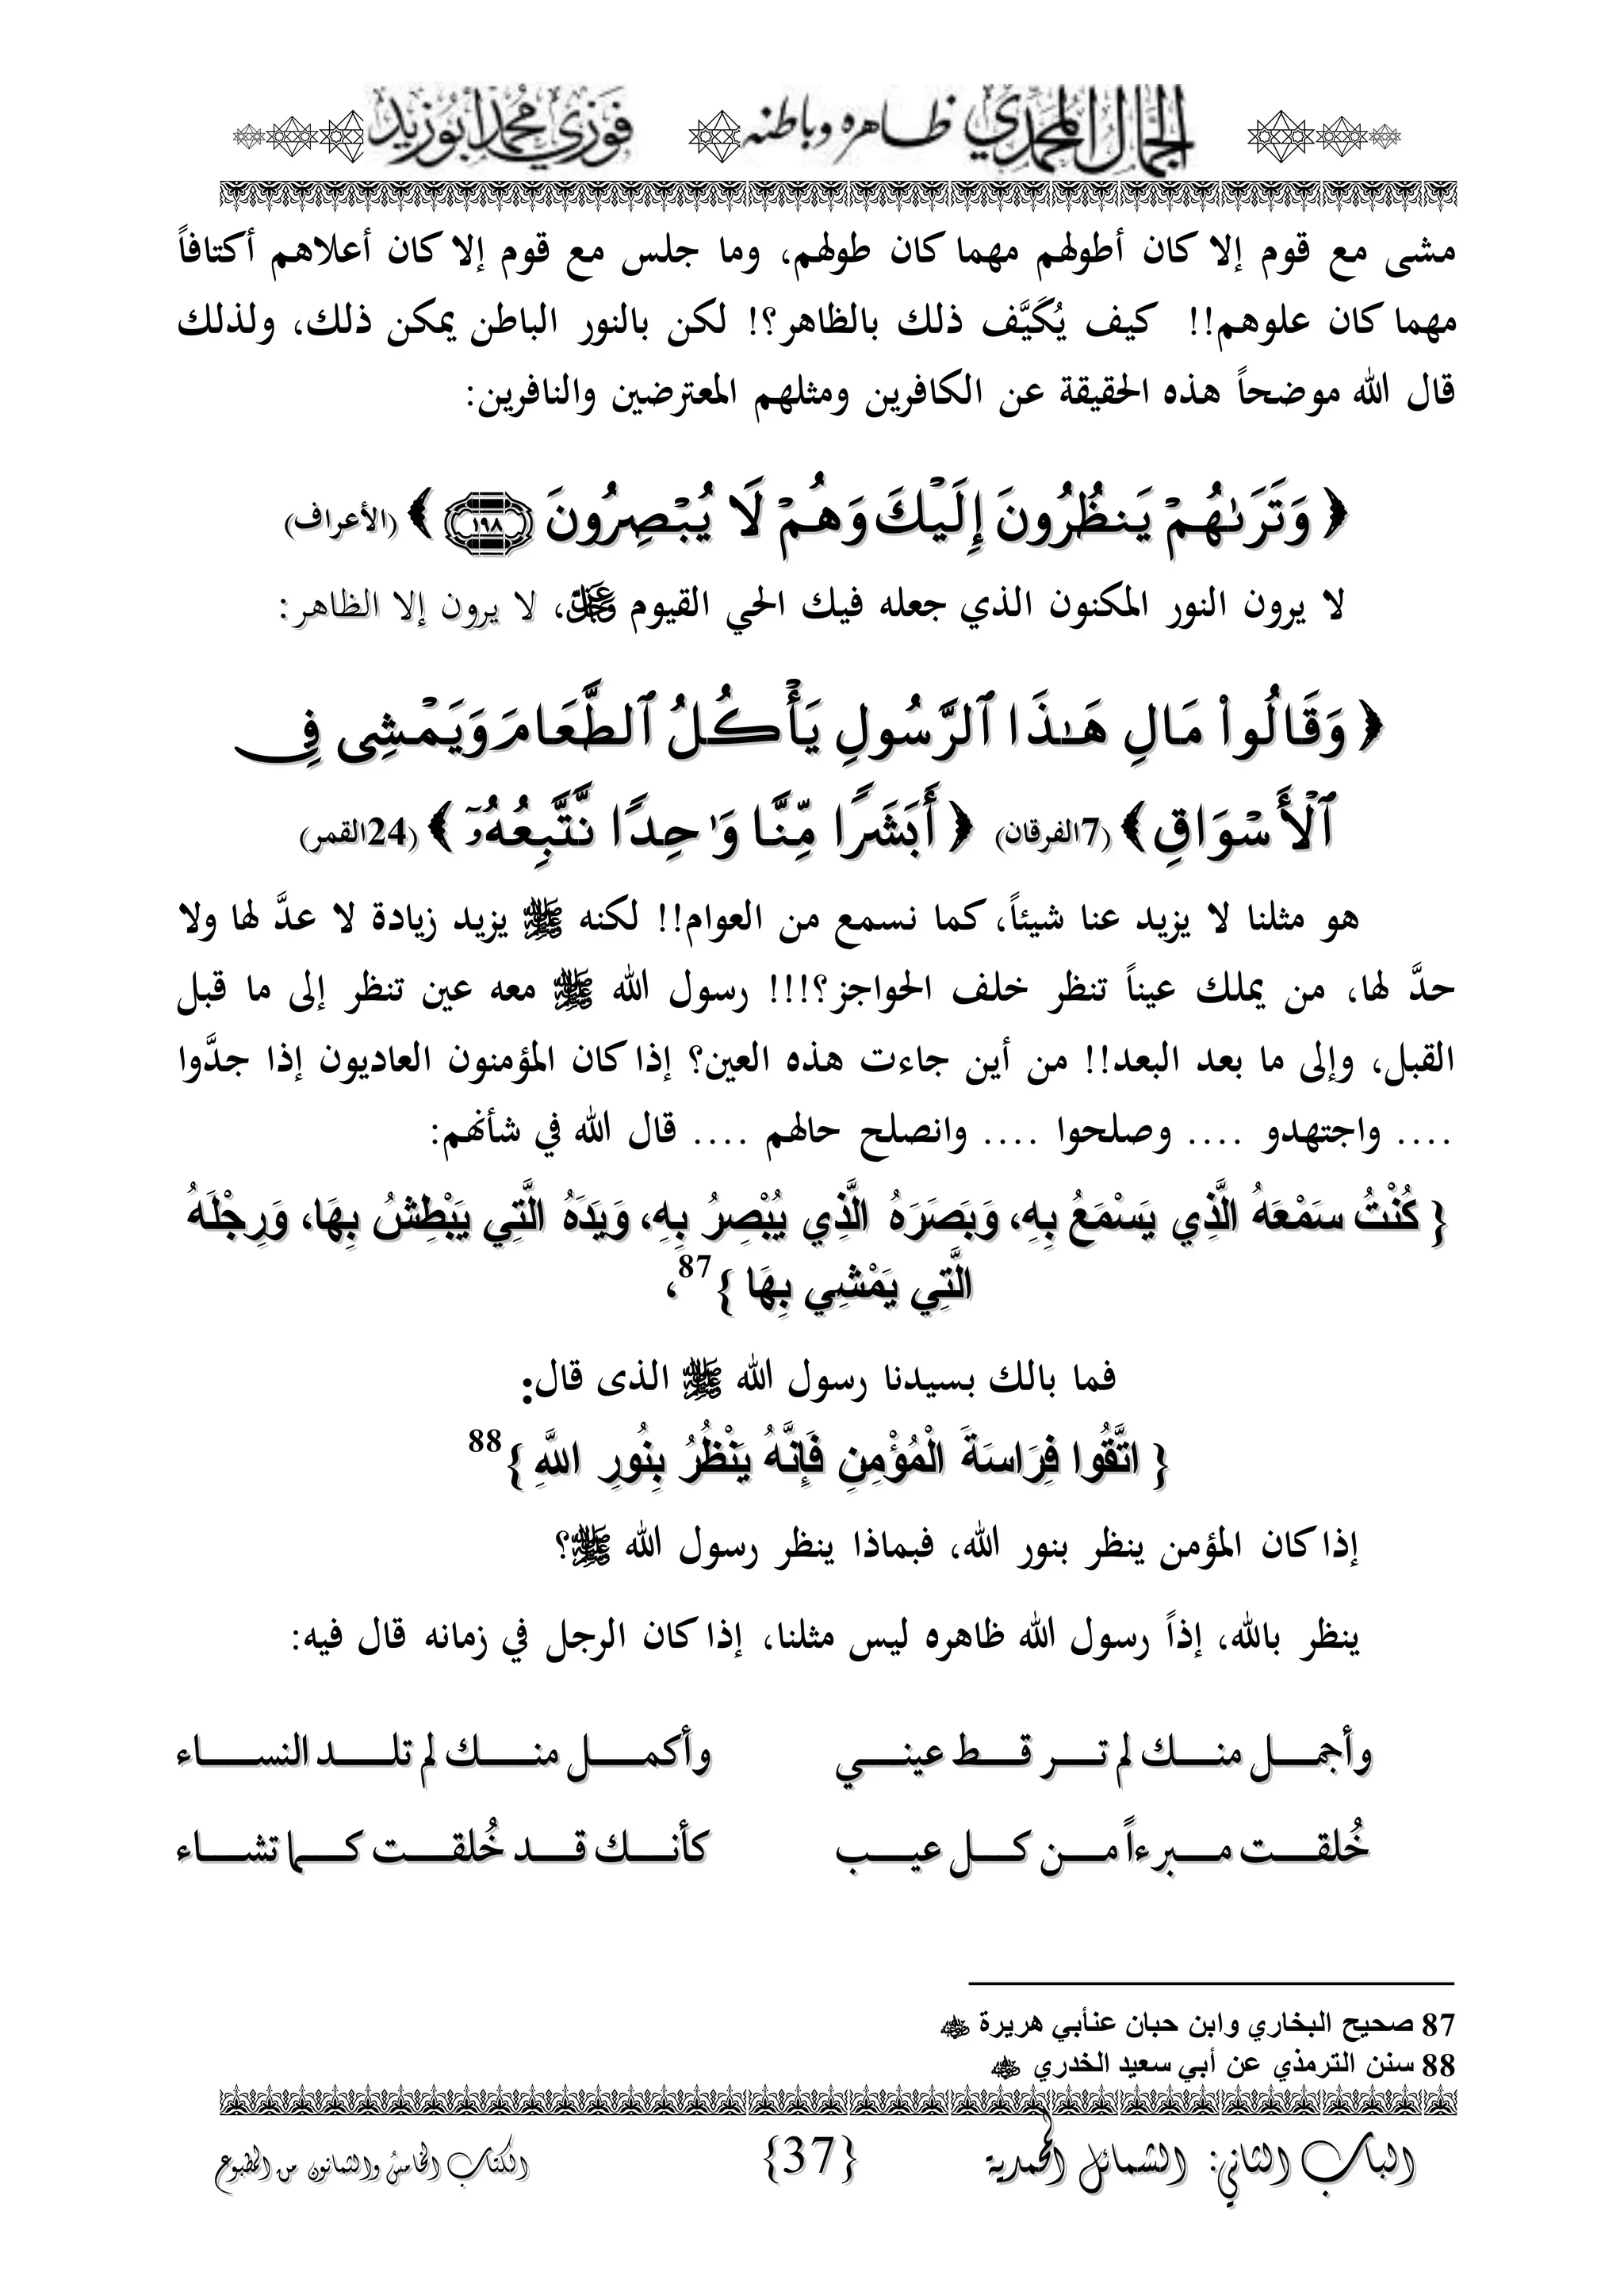 الجمال المحمدي ظاهره وباطنه فوزي محمد أبوزيد
مشى مع قوم إلا كان أطولهم مهما كان طولهم، وما جلس مع قوم إلا كان أعلاهم أكتافاً
مهما كان علوهم!! كيف يُكَيَّف ذلك بالظاهر؟! لكن بالنور الباطن يمكن ذلك، ولذلك
قال الله موضحاً هذه الحقيقة عن الكافرين ومثلهم المعترضين والنافرين:
﴿ وَتَرَىٰهُمْ يَنظُرُونَ إِلَيْكَ وَهُمْ لَا يُبْصِرُونَ ١٩٨ ﴾ (الأعراف)
لا يرون النور المكنون الذي جعله فيك الحي القيوم عز وجل، لا يرون إلا الظاهر:
﴿ وَقَالُوا۟ مَالِ هَـٰذَا ٱلرَّسُولِ يَأْكُلُ ٱلطَّعَامَ وَيَمْشِى فِى
ٱلْأَسْوَاقِ ﴾ (7الفرقان) ﴿ أَبَشَرًا مِّنَّا وَٰحِدًا نَّتَّبِعُهُۥٓ ﴾ (24القمر)
هو مثلنا لا يزيد عنا شيئاً، كما نسمع من العوام!! لكنه ﷺ يزيد زيادة لا عدَّ لها ولا
حدَّ لها، من يملك عيناً تنظر خلف الحواجز؟!!! رسول الله ﷺ معه عين تنظر إلى ما قبل
القبل، وإلى ما بعد البعد!! من أين جاءت هذه العين؟ إذا كان المؤمنون العاديون إذا جدَّوا
.... واجتهدو .... وصلحوا .... وانصلح حالهم .... قال الله في شأنهم:
{ كُنْتُ سَمْعَهُ الَّذِي يَسْمَعُ بِهِ، وَبَصَرَهُ الَّذِي يُبْصِرُ بِهِ، وَيَدَهُ الَّتِي يَبْطِشُ بِهَا، وَرِجْلَهُ
الَّتِي يَمْشِي بِهَا }87،
فما بالك بسيدنا رسول الله ﷺ الذى قال:
{ اتَّقُوا فِرَاسَةَ الْمُؤْمِنِ فَإِنَّهُ يَنْظُرُ بِنُورِ اللَّهِ }88
إذا كان المؤمن ينظر بنور الله، فبماذا ينظر رسول الله ﷺ؟
ينظر بالله، إذاً رسول الله ظاهره ليس مثلنا، إذا كان الرجل في زمانه قال فيه:
وأجمـــل منـــك لم تـــر قـــط عينـــي وأكمـــل منـــك لم تلـــد النســـاء
خُلقـــت مـــبرءاً مـــن كـــل عيـــب كأنـــك قـــد خُلقـــت كـــما تشـــاء
87 صحيح البخاري وابن حبان عنأبي هريرة رضي الله عنه
88 سنن الترمذي عن أبي سعيد الخدري رضي الله عنه
الباب الثاني: الشمائل المحمدية {37} الكتاب الخامس والثمانون من المطبوع